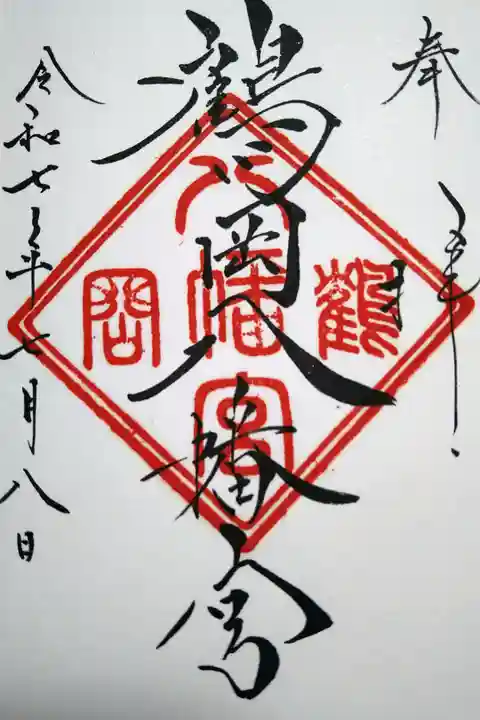 奉拝
鶴岡八幡宮
鶴
八幡宮
岡
令和七年七月八日